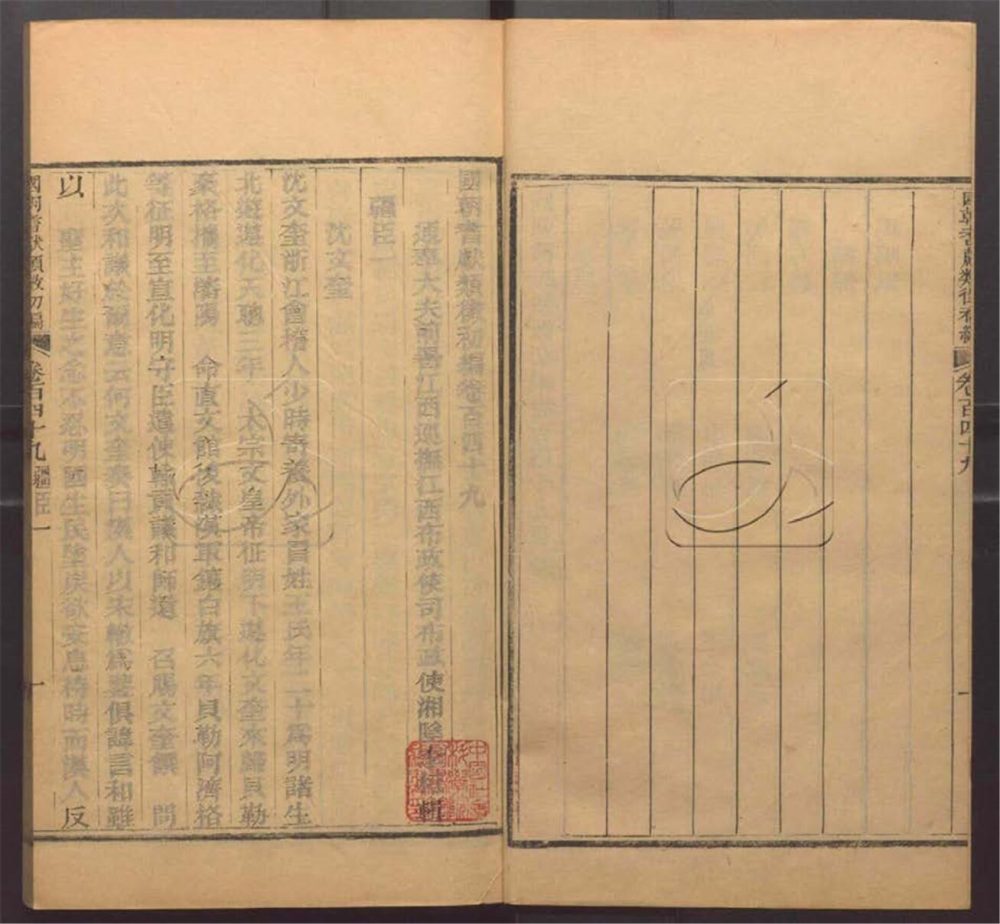 國朝耆獻類徵初編 卷百四十九 一
國朝耆獻類徵初編卷百四十九
通奉大夫前署江西巡撫江西布政使司布政使湘陰李桓輯
疆臣一
沈文奎
沈文奎浙江會稽人少時寄養外家冒姓王氏年二十爲明諸生
北遊遵化天聰三年 太宗文皇帝征明下遵化文奎來歸貝勒
豪格攜至瀋陽 命直文館後隸漢軍鑲白旗六年貝勒阿濟格
等征明至宣化明守臣遣使輸貢議和師還 召賜文奎饌 問
此次和議於爾意云何文奎奏曰漢人以宋轍爲鑒俱諱言和雖
聖主好生之念不忍明國生民塗炭欲安息待時而漢人反以
國朝耆獻類徵初編 卷百四十九 疆臣一 一